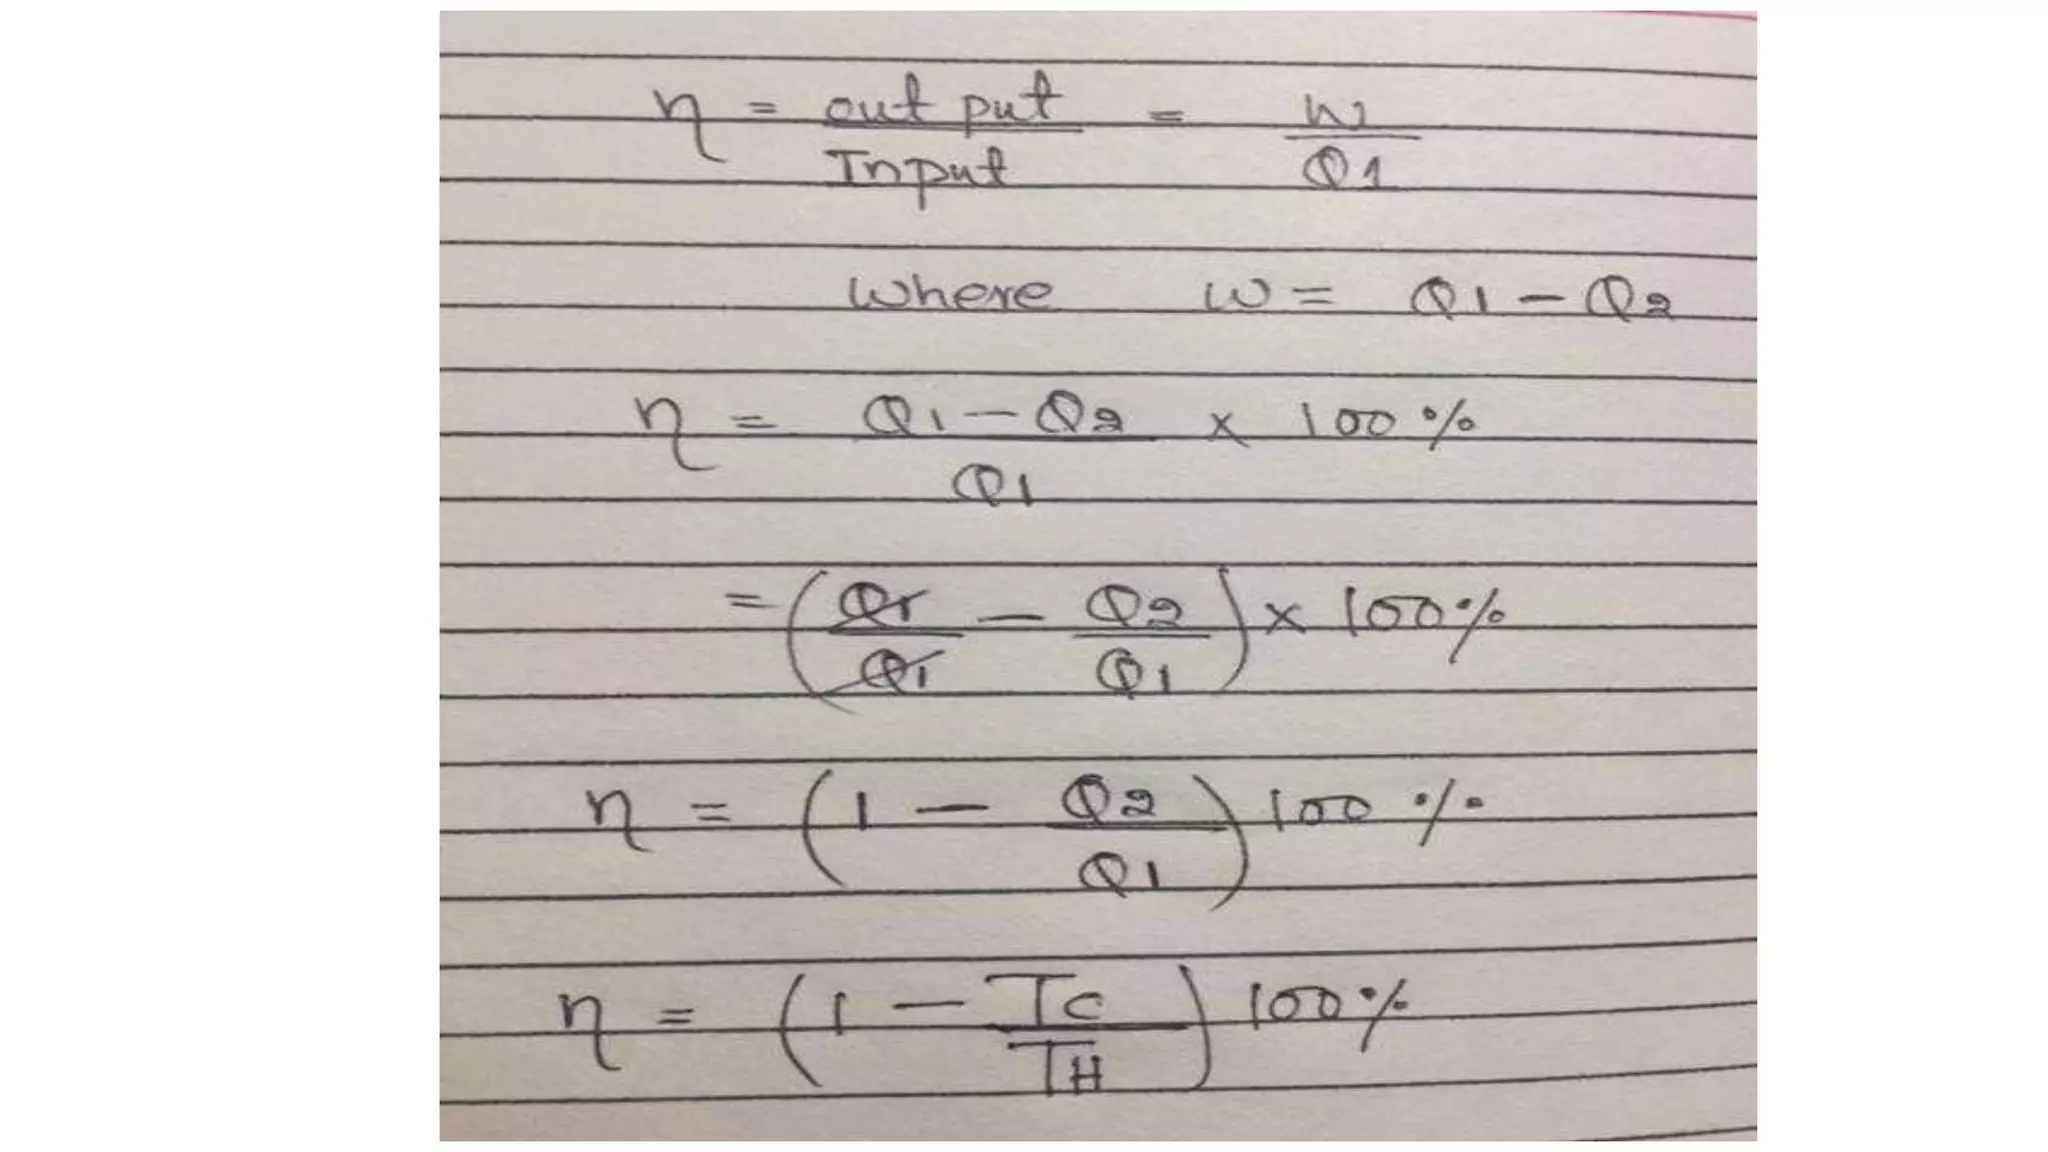 η = out put / Input = W / Q1
where w = Q1 - Q2
η = Q1 - Q2 / Q1 × 100 %
= (Q1 / Q1 - Q2 / Q1) × 100 %
η = (1 - Q2 / Q1) 100 %
η = (1 - TC / TH) 100 %